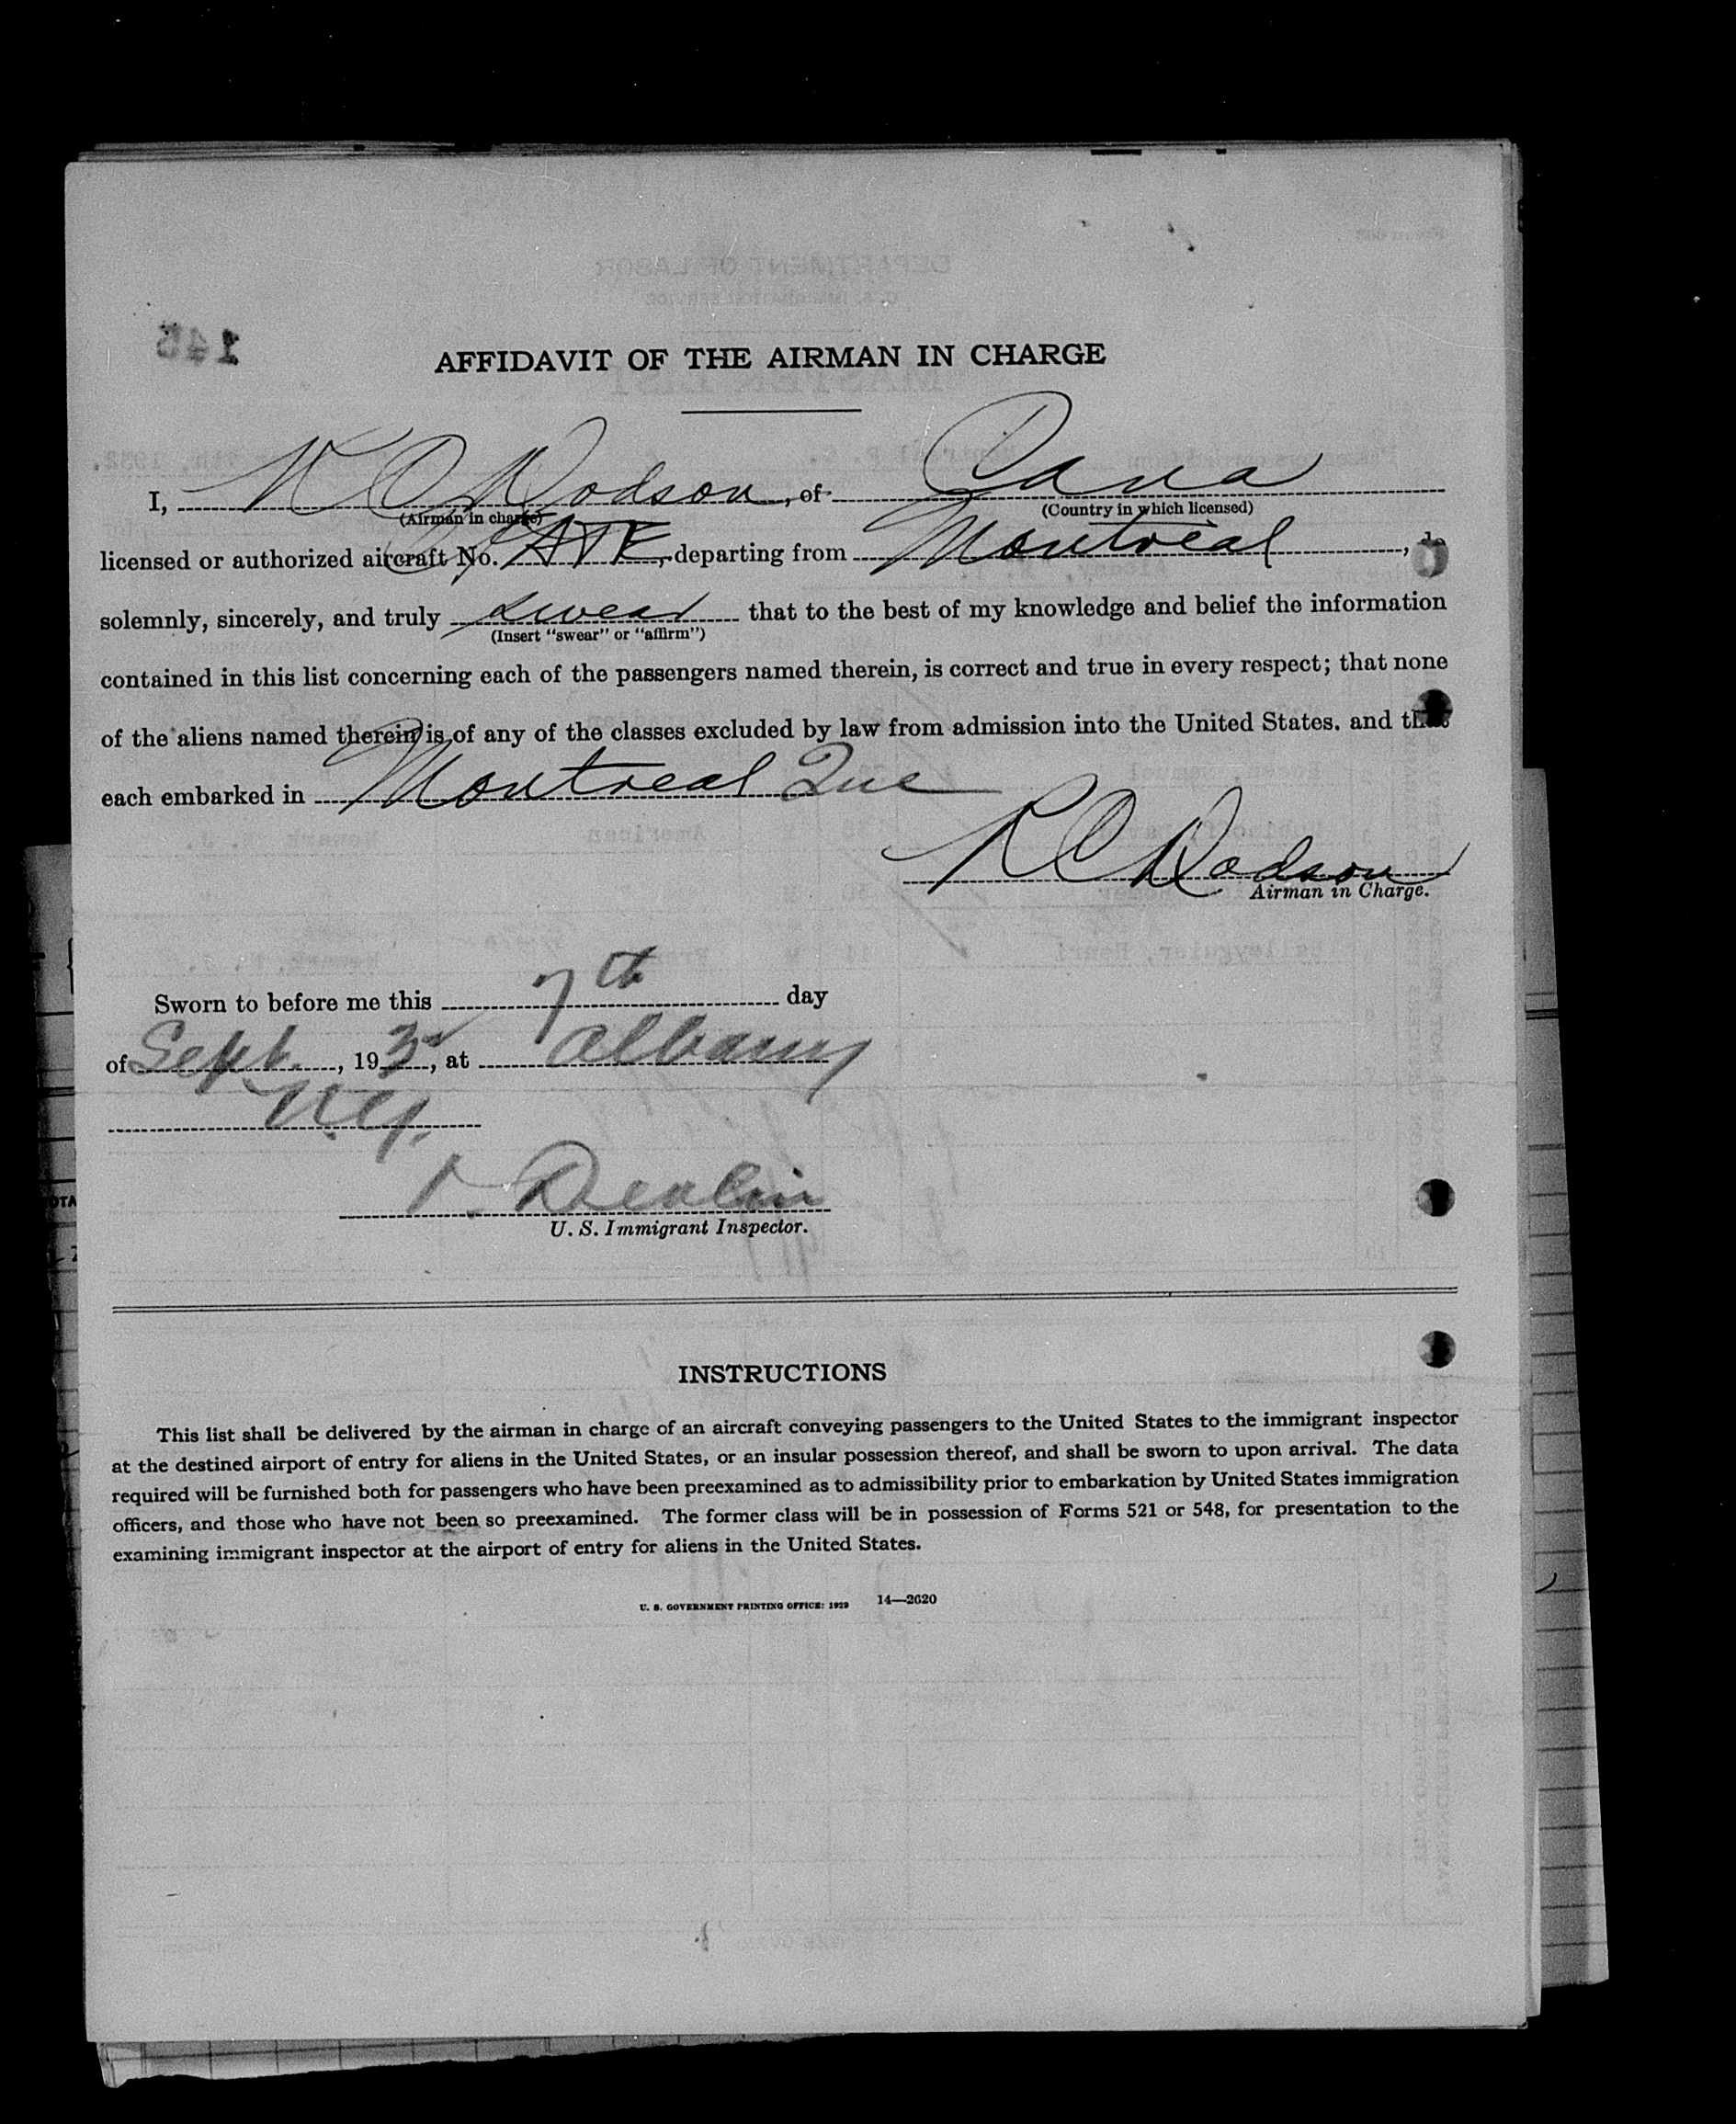 AFFIDAVIT OF THE AIRMAN IN CHARGE
I, W O Dodson, of Cana
(Airman in charge) (Country in which licensed)
licensed or authorized aircraft No. CF ATE, departing from Montreal, do
solemnly, sincerely, and truly swear that to the best of my knowledge and belief the information
(Insert "swear" or "affirm")
contained in this list concerning each of the passengers named therein, is correct and true in every respect; that none
of the aliens named therein is of any of the classes excluded by law from admission into the United States, and that
each embarked in Montreal Que
Dodson
Airman in Charge.
Sworn to before me this 7th day
of Sept., 193, at Albany
N.Y.
Devlin
U. S. Immigrant Inspector.
INSTRUCTIONS
This list shall be delivered by the airman in charge of an aircraft conveying passengers to the United States to the immigrant inspector
at the destined airport of entry for aliens in the United States, or an insular possession thereof, and shall be sworn to upon arrival. The data
required will be furnished both for passengers who have been preexamined as to admissibility prior to embarkation by United States immigration
officers, and those who have not been so preexamined. The former class will be in possession of Forms 521 or 548, for presentation to the
examining immigrant inspector at the airport of entry for aliens in the United States.
U. S. GOVERNMENT PRINTING OFFICE: 1929 14—2620